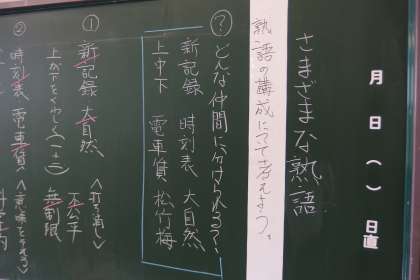 月 日（ ）日直
さまざまな熟語
熟語の構成について考えよう。
？どんな仲間に分けられる？
新記録 時刻表 大自然
上中下 電車賃 松竹梅
① 新記録 大自然 〈打ち消し〉
上が下をくわしく(1+2) 不公平
無制限
② 時刻表 電車賃